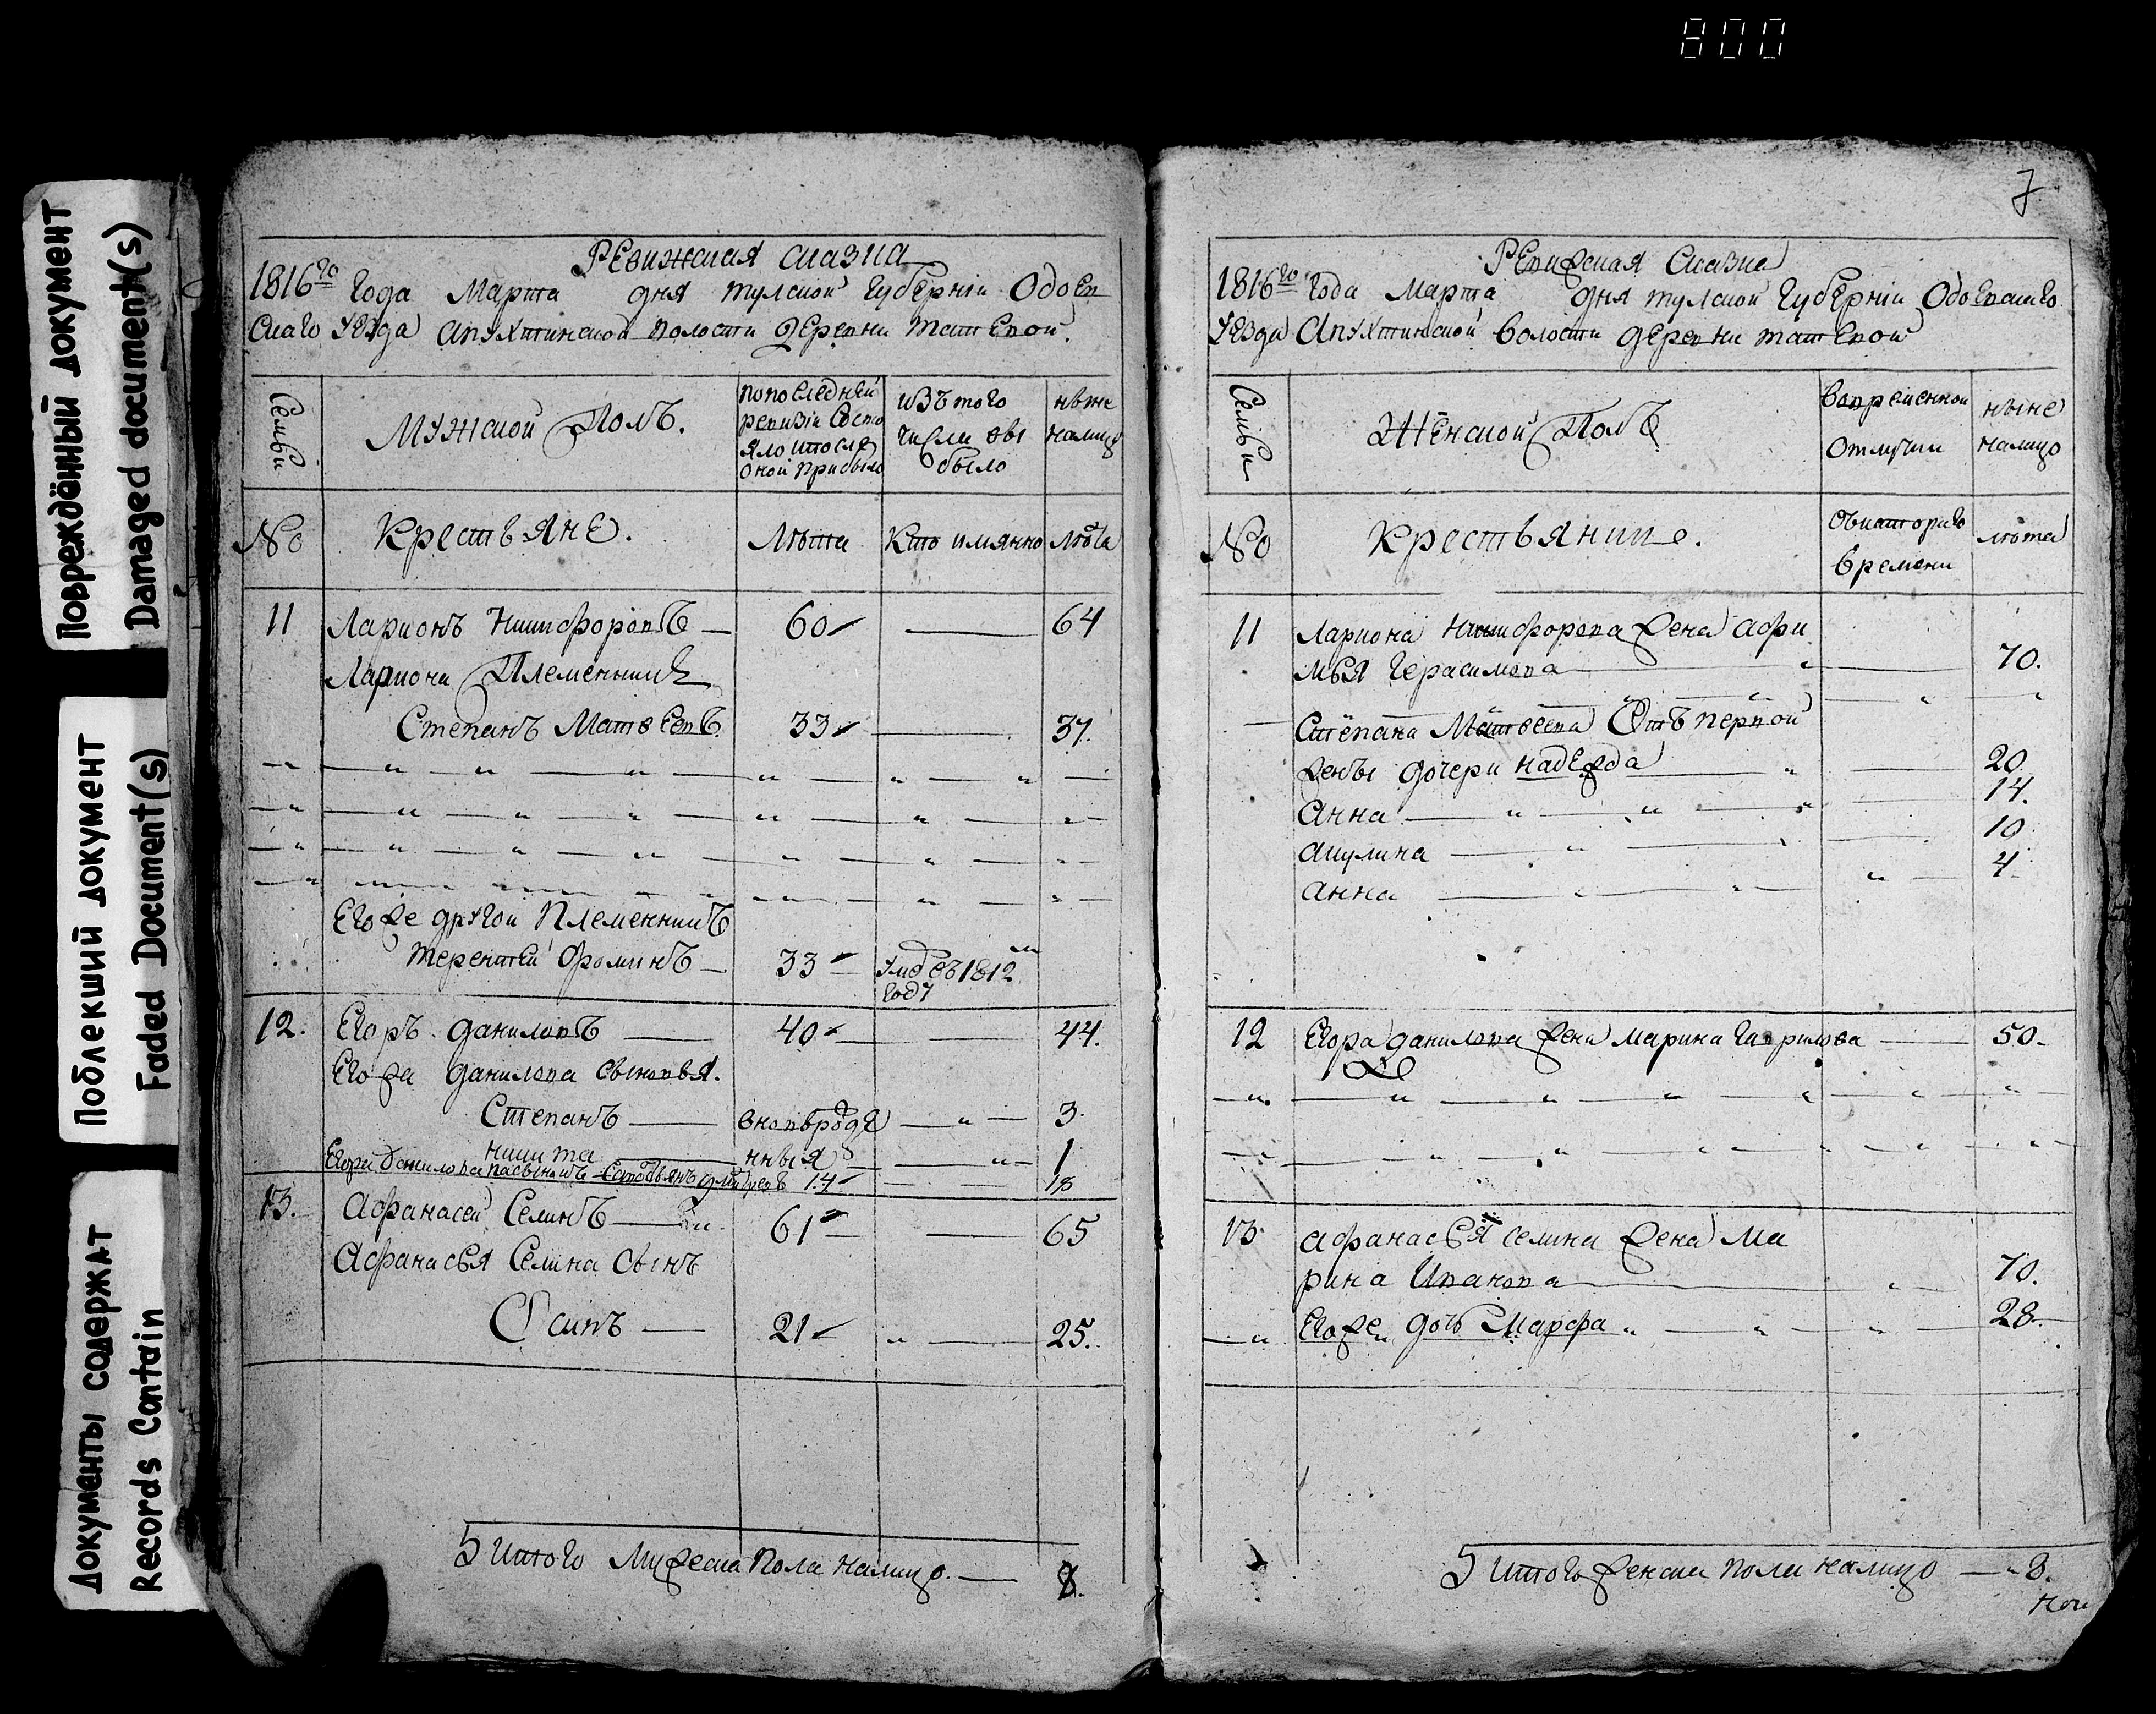 800
Повреждённый документ
Damaged document(s)
Поблекший документ
Faded Document(s)
Документы содержат
Records Contain
Ревижская сказка
1816го года Марта дня тулской губернiи Одоев
скаго уезда апухтинской волости деревни
Семьи
Мужской Полъ.
попоследней
ревизiи состо
яло ипосле
оной прибыло
изъ того
числи вы
было
ныне
налицо
№
Крестьяне.
Лъта
Кто имянно
лъта
11 Ларионъ Никифоровъ — 60 — 64
Лариона Племенникъ
Степанъ Матвеевъ 33 — 37.
Егоже другой Племенникъ
терентей Фоминъ — 33 — умре въ 1812м
году
12. Егоръ даниловъ — 40 — 44.
Егора данилова сыновья.
Степанъ — вновьрожде — " — 3.
никита — нныя — " — 1
Егора данилова пасынокъ 14 — 18
13. Афанасей Селинъ — 61 — 65
Афанасья Селина сынъ
Осипъ — 21 — " — 25.
Итого Мужеска Пола налицо. — 8.
7
Ревижская Сказка
1816го года Марта дня тулской губернiи Одоевскаго
уезда Апухтинской волости деревни
Семьи
Женской Полъ
вовременной
отлучки
ныне
налицо
№
Крестьянки.
съкоторого
времени
лъта
11 Лариона Никифорова жена афи
мья герасимова — 70.
Степана Матвеева Отъ первой
жены дочери надежда — 20.
Анна — 14.
акулина — 10
анна — 4
12 Егора данилова жена марина гаврилова — 50.
13. афанасья селина жена Ма
рина Иванова — 70.
Егоже дочь Марфа — 28.
Итого женска пола налицо — 8.